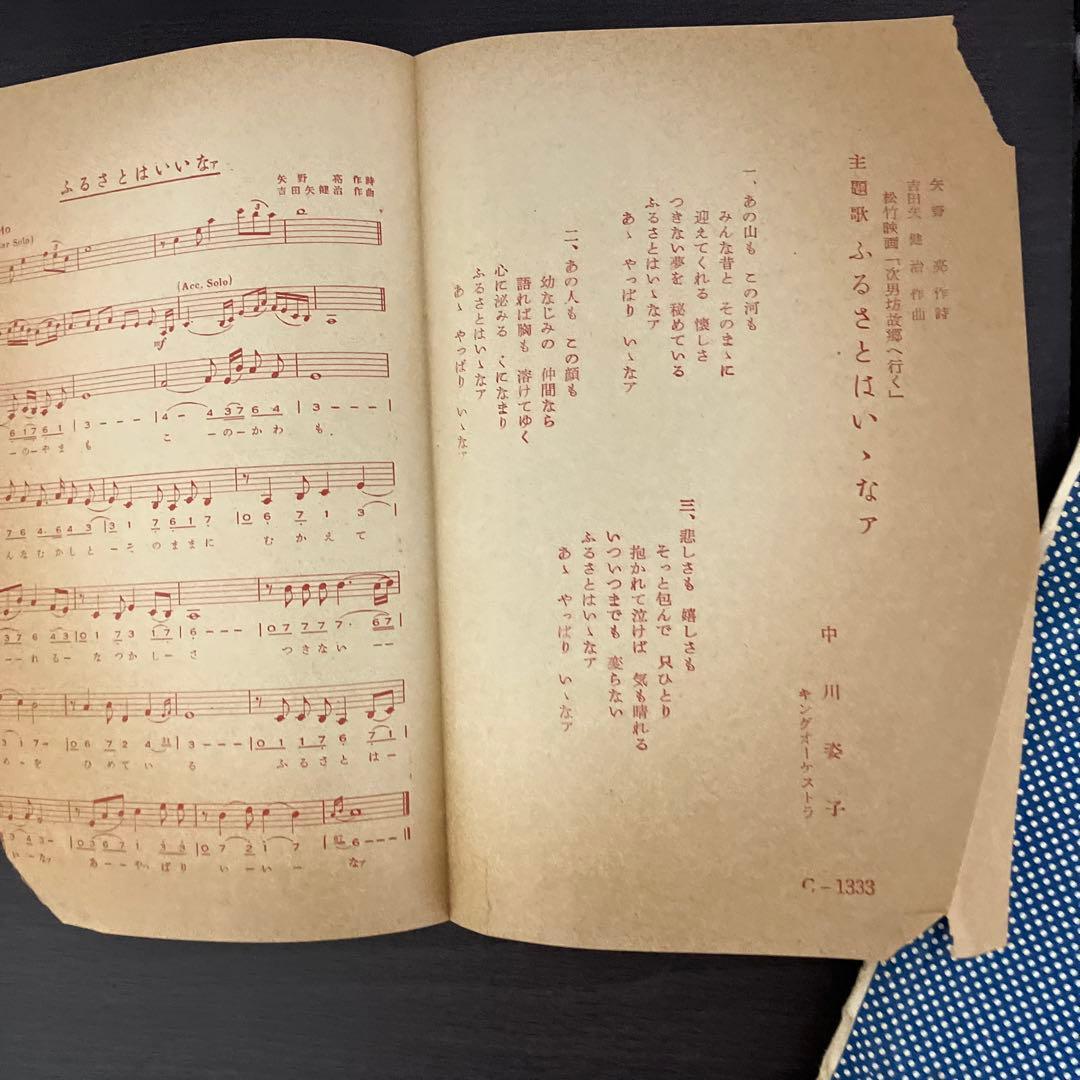 矢野 亮 作詩
吉田矢 健治 作曲
松竹映画「次男坊故郷へ行く」
主題歌 ふるさとはいゝなァ
中川姿子
キングオーケストラ
C-1333
一、あの山も この河も
みんな昔と そのまゝに
迎えてくれる 懐しさ
つきない夢を 秘めている
ふるさとはいゝなァ
あゝ やっぱり いゝなァ
二、あの人も この顔も
幼なじみの 仲間なら
語れば胸も 溶けてゆく
心に泌みる くになまり
ふるさとはいゝなァ
あゝ やっぱり いゝなァ
三、悲しさも 嬉しさも
そっと包んで 只ひとり
抱かれて泣けば 気も晴れる
いついつまでも 変らない
ふるさとはいゝなァ
あゝ やっぱり いゝなァ
ふるさとはいいなァ
矢野 亮 作詩
吉田矢健治 作曲
Solo)
3 3
(Acc. Solo)
mf
6 1 7 6 1 | 3 - - - | 4 - 4 3 7 6 4 | 3 - - -
ーのーやま も こ ーのーかわ も
7 6 4 6 4 3 | 3 1 7 6 1 7 | 0 6 7 1 3
んなむかしとーそのままに むかえて
3 7 6 4 3 | 0 1 7 3 1 7 | 6 - - - | 0 7 7 7 7・ 6 7
ーーれるー なつかしーさ つきない ーー
3 1 7 - | 0 6 7 2 4 | 3 - - - | 0 1 1 7 6 7 1
めーを ひめている ふるさと はー
3 4 3 - | 0 3 6 7 1 3 3 | 0 7 2 1 7 | 6 - - -
いーなァ あーーやっぱり いーいー なァ